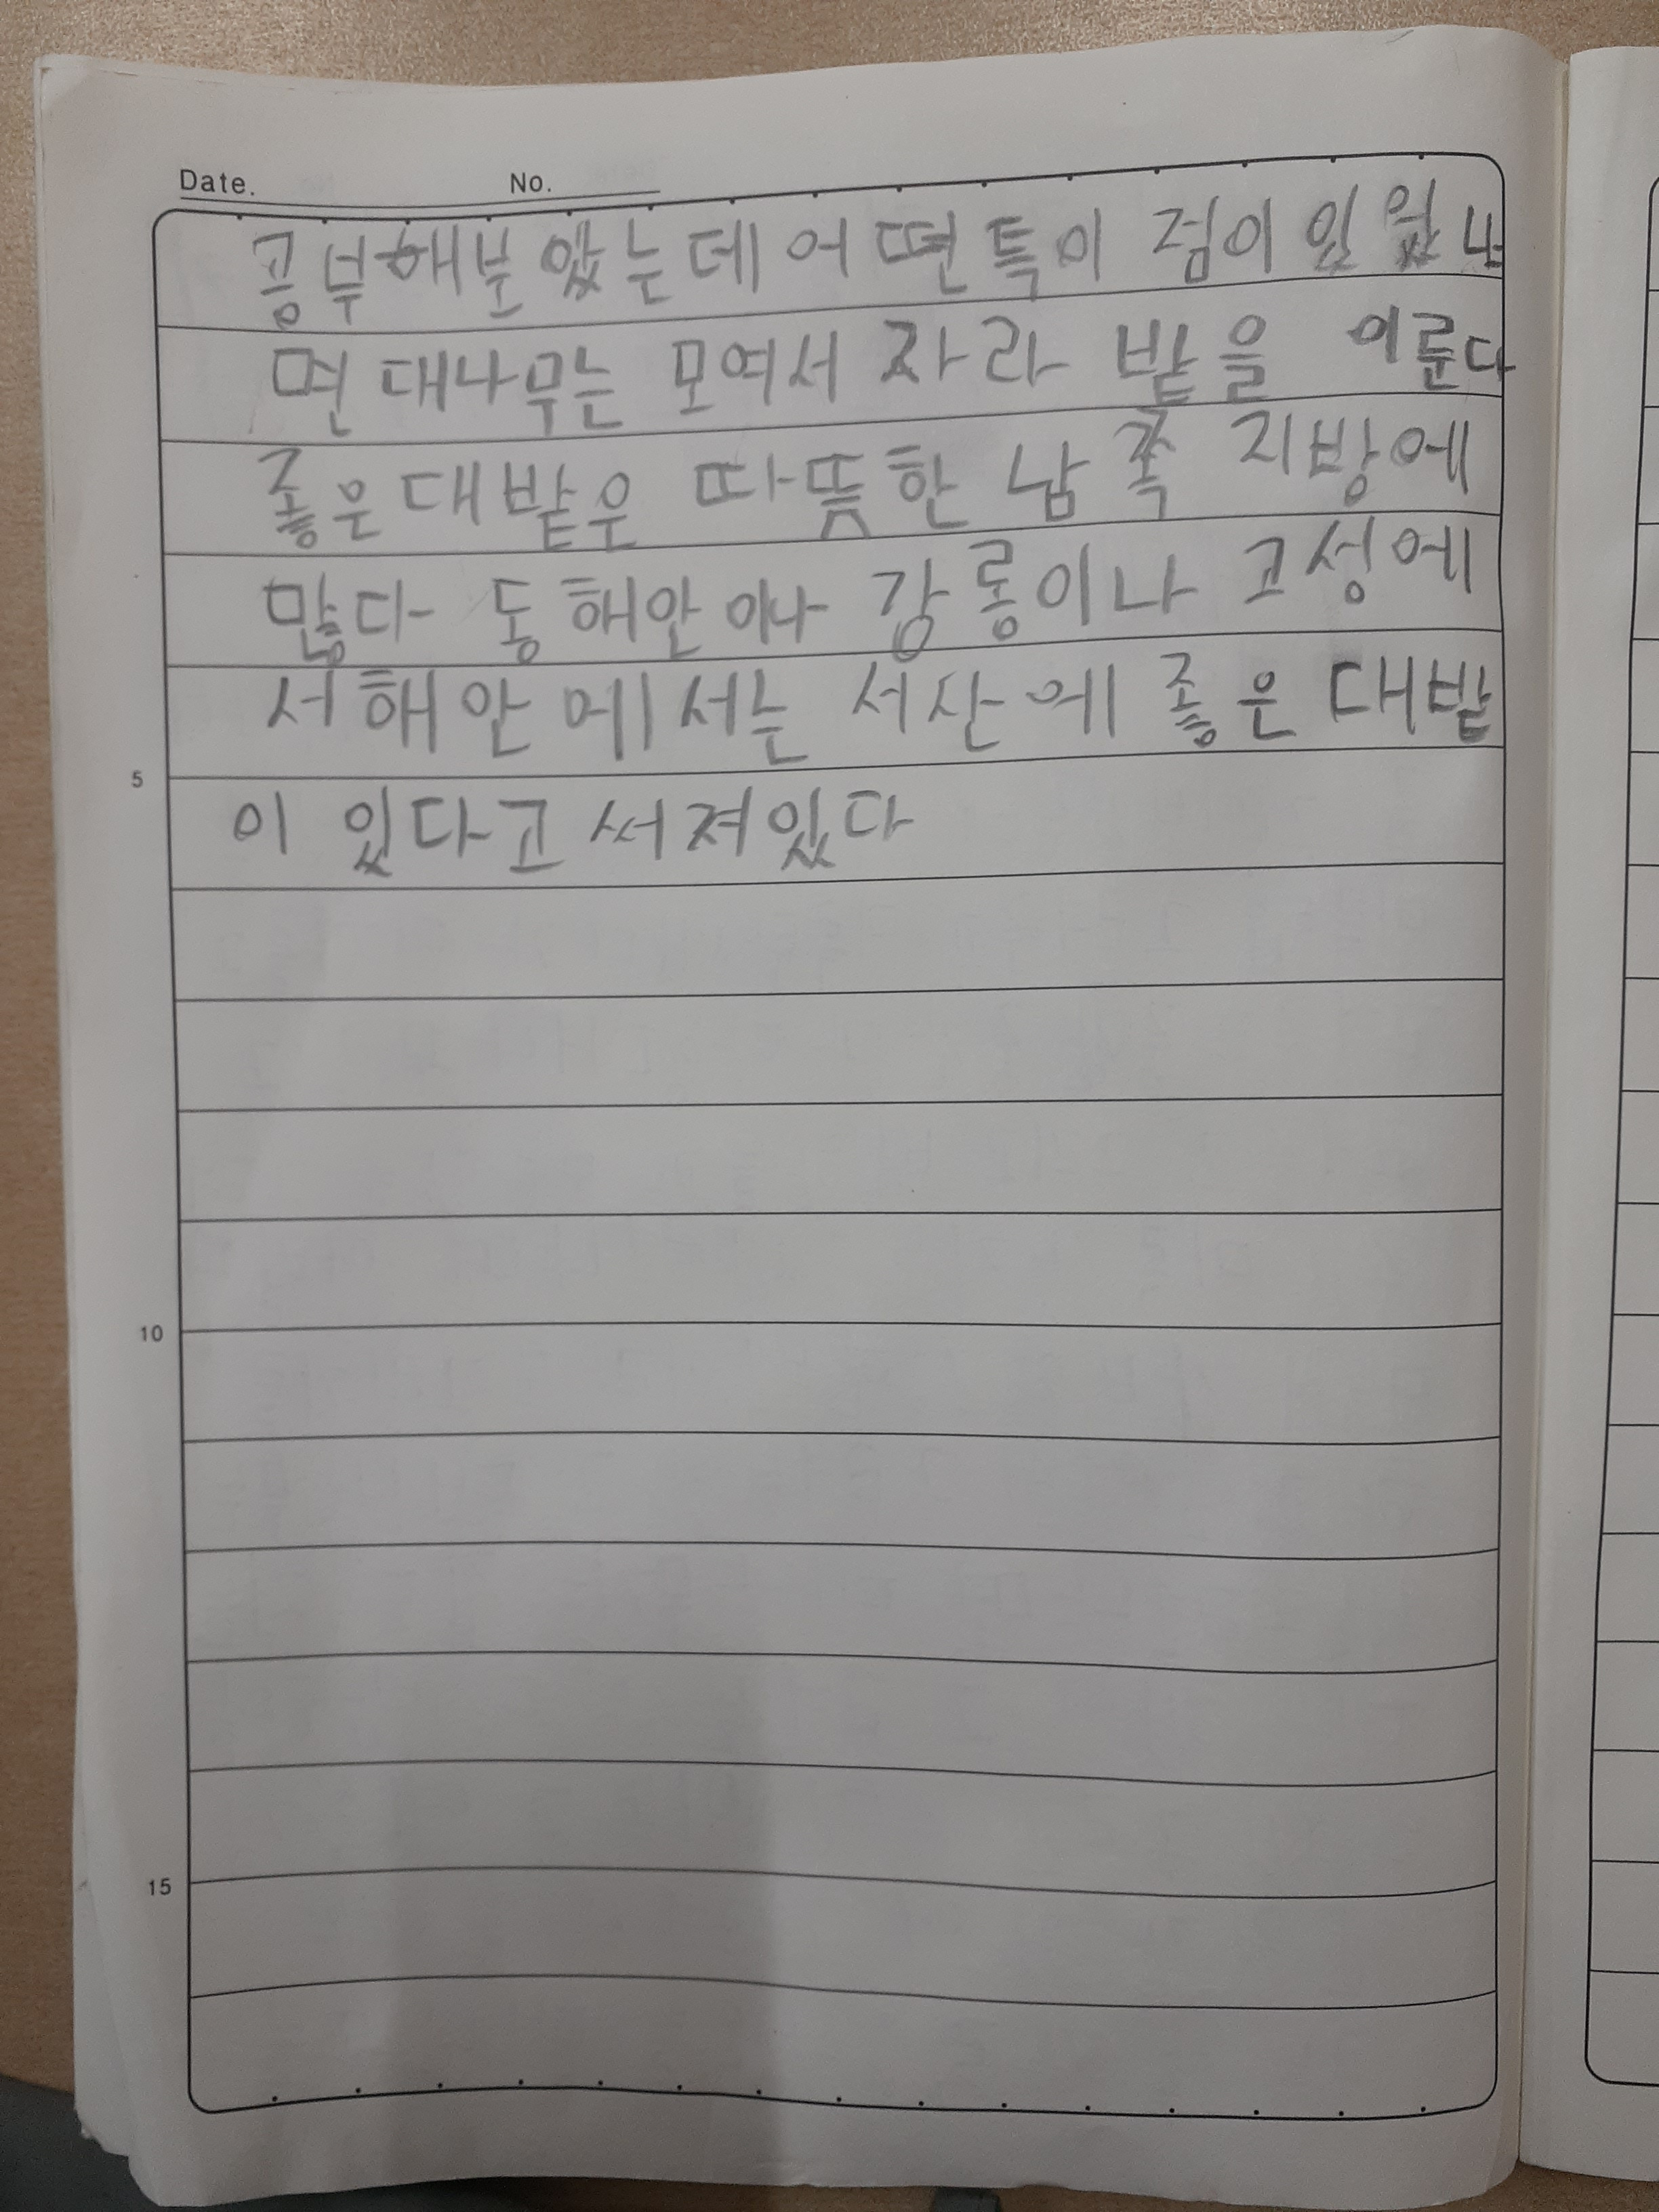 Date. No.
공부해본았는데 어떤 특이 점이 있었냐
면 대나무는 모여서 자라 밭을 이룬다
좋은 대밭은 따뜻한 남쪽 지방에
많다 동해안이나 강릉이나 고성에
서해안에서는 서산에 좋은 대밭
5
이 있다고 써져있다
10
15